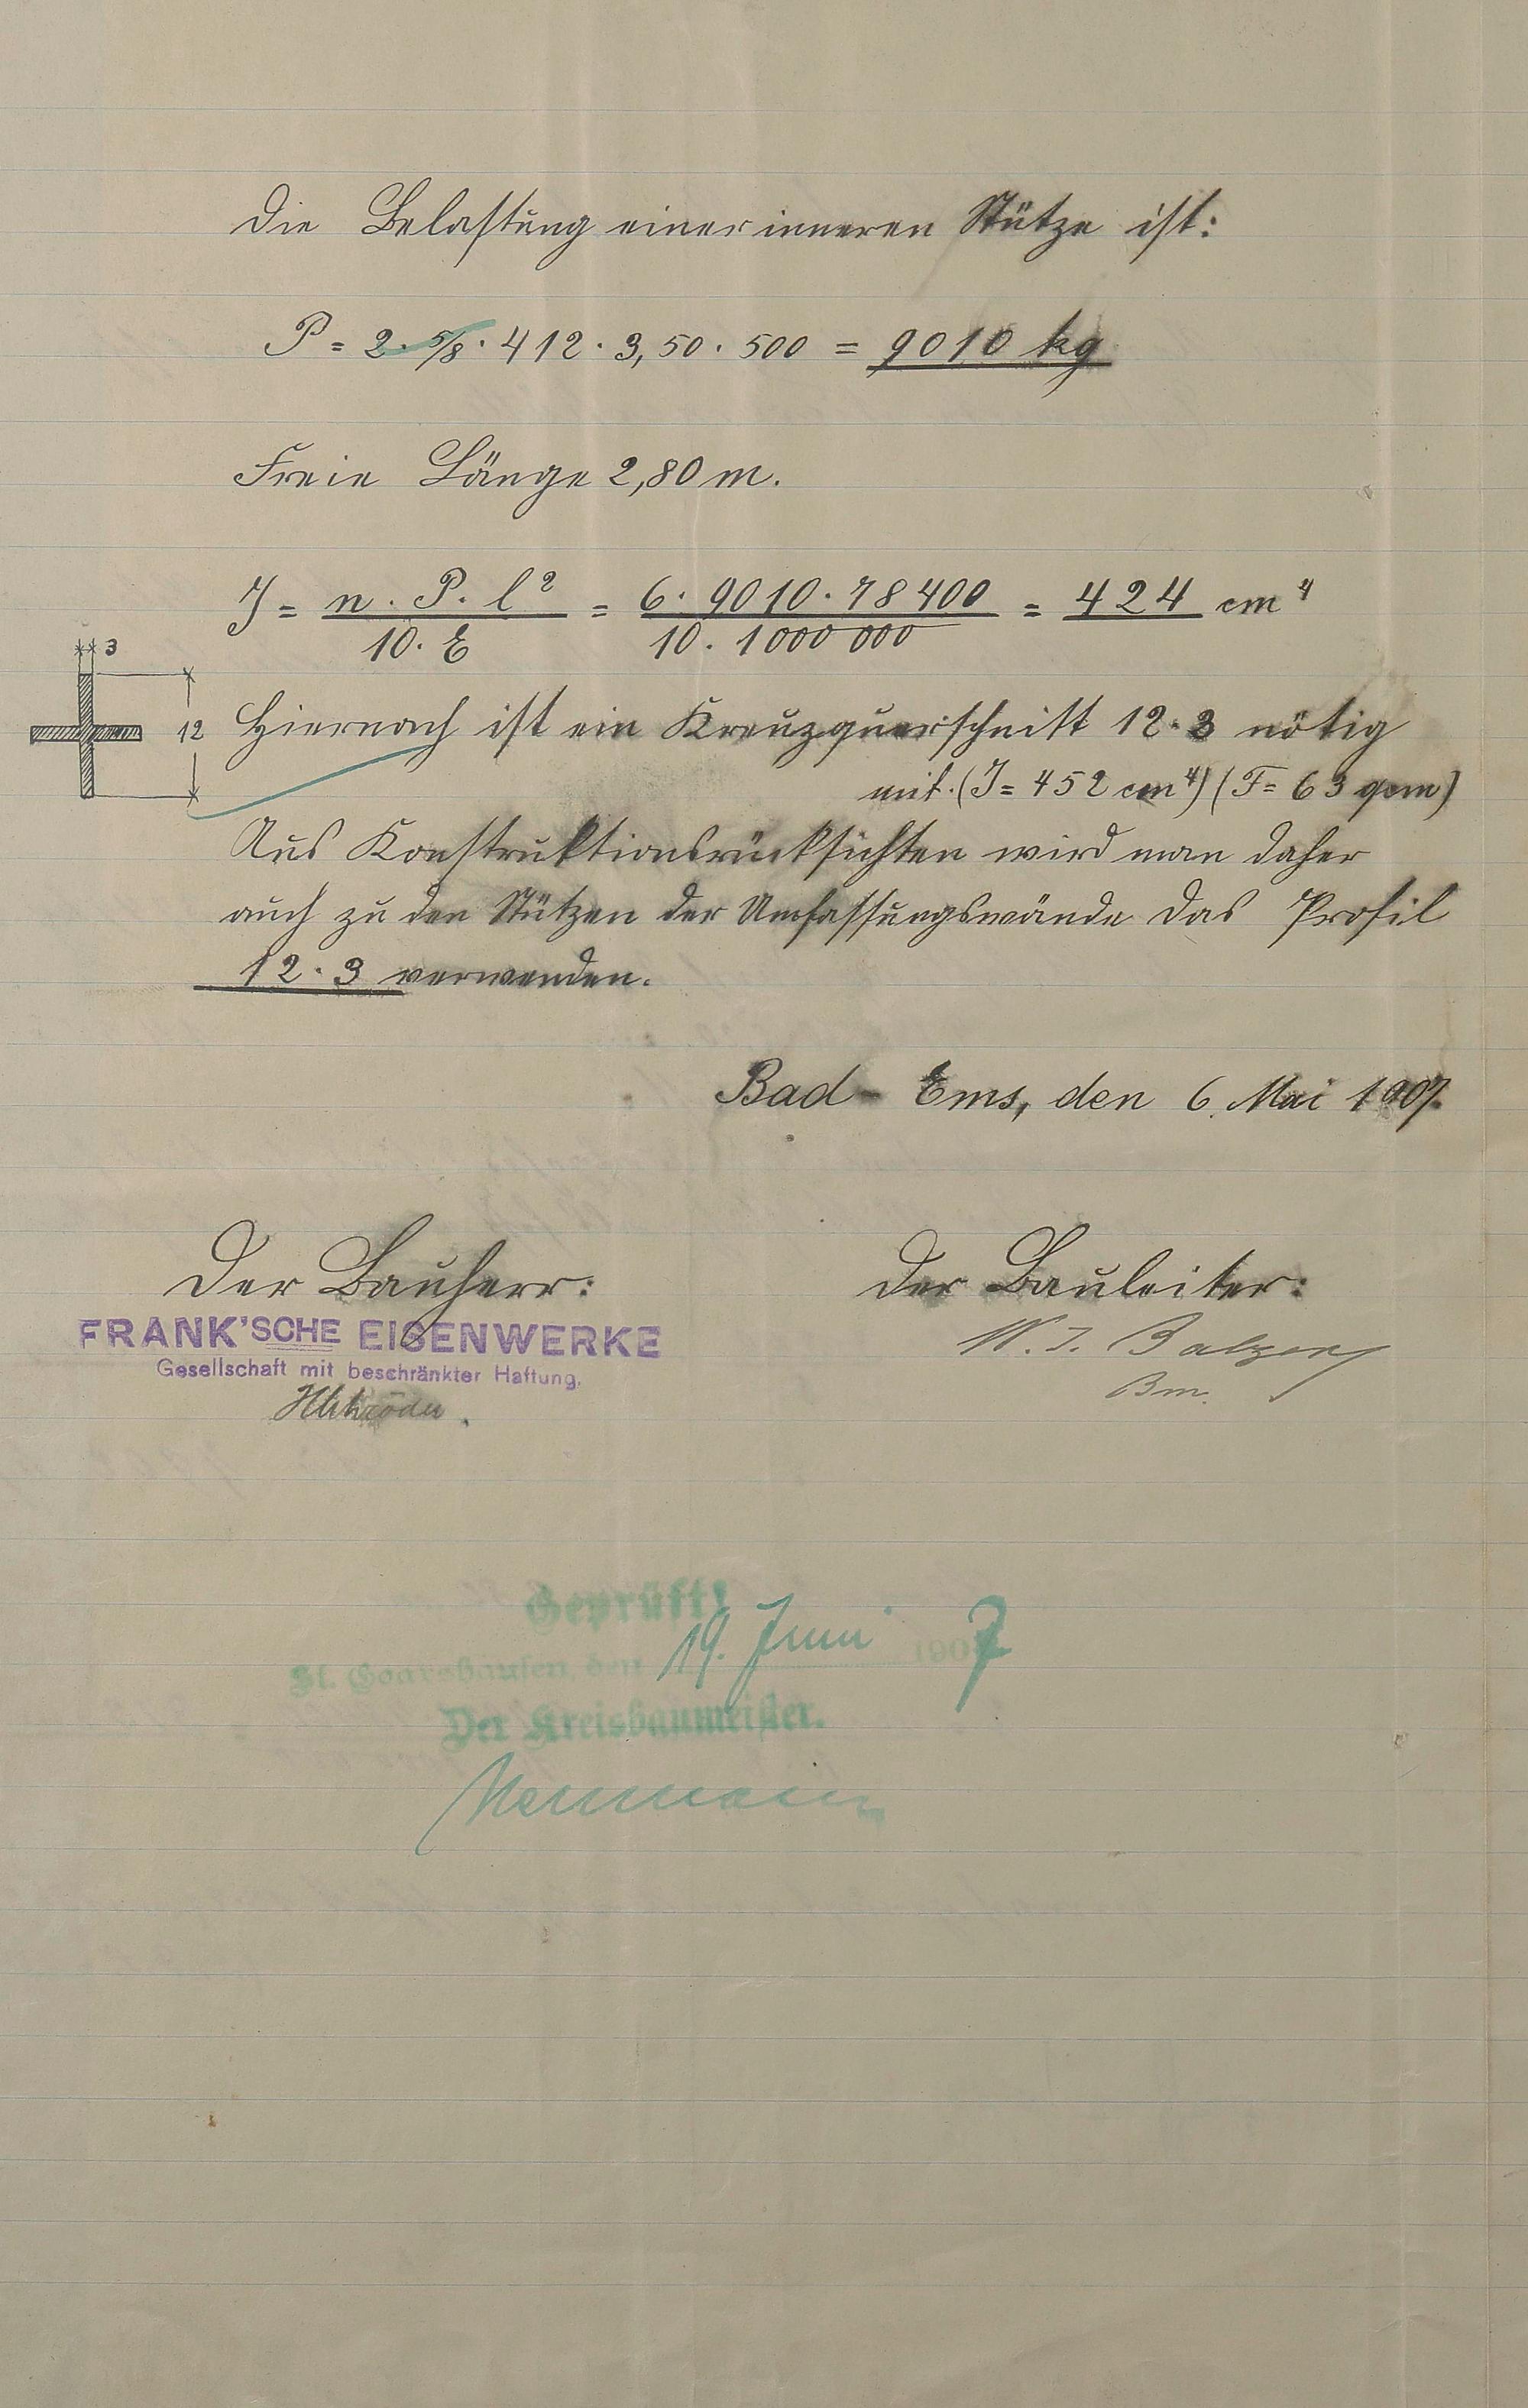 Die Belastung einer inneren Stütze ist:
P = 2 · 5/8 · 412 · 3,50 · 500 = 9010 kg
Freie Länge 2,80 m.
J = n · P · l² / 10 · E = 6 · 9010 · 78400 / 10 · 1000 000 = 424 cm⁴
3
12
Hiernach ist ein Kreuzquerschnitt 12·3 nötig
mit (J = 452 cm⁴) (F = 63 qcm)
Aus Konstruktionsrücksichten wird man daher
auch zu den Stützen der Umfassungswände das Profil
12·3 verwenden.
Bad-Ems, den 6. Mai 1907.
Der Bauherr:
Der Bauleiter:
FRANK'SCHE EISENWERKE
Gesellschaft mit beschränkter Haftung.
W. J. Balzer
Bm.
Geprüft!
St. Goarshausen, den 19. Juni 1907
Der Kreisbaumeister.